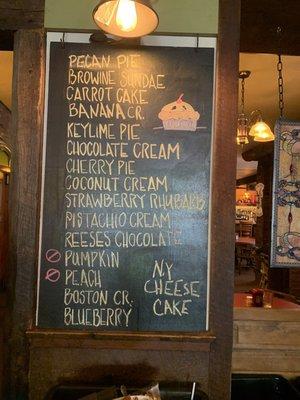 PECAN PIE
BROWINE SUNDAE
CARROT CAKE
BANANA CR.
KEYLIME PIE
CHOCOLATE CREAM
CHERRY PIE
COCONUT CREAM
STRAWBERRY RHUBARB
PISTACHIO CREAM
REESES CHOCOLATE
PUMPKIN
PEACH
BOSTON CR.
BLUEBERRY
N.Y
CHEESE
CAKE